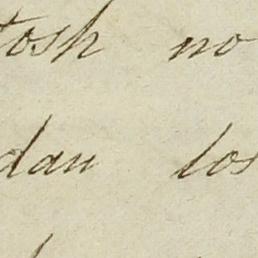 tosh no
dan los